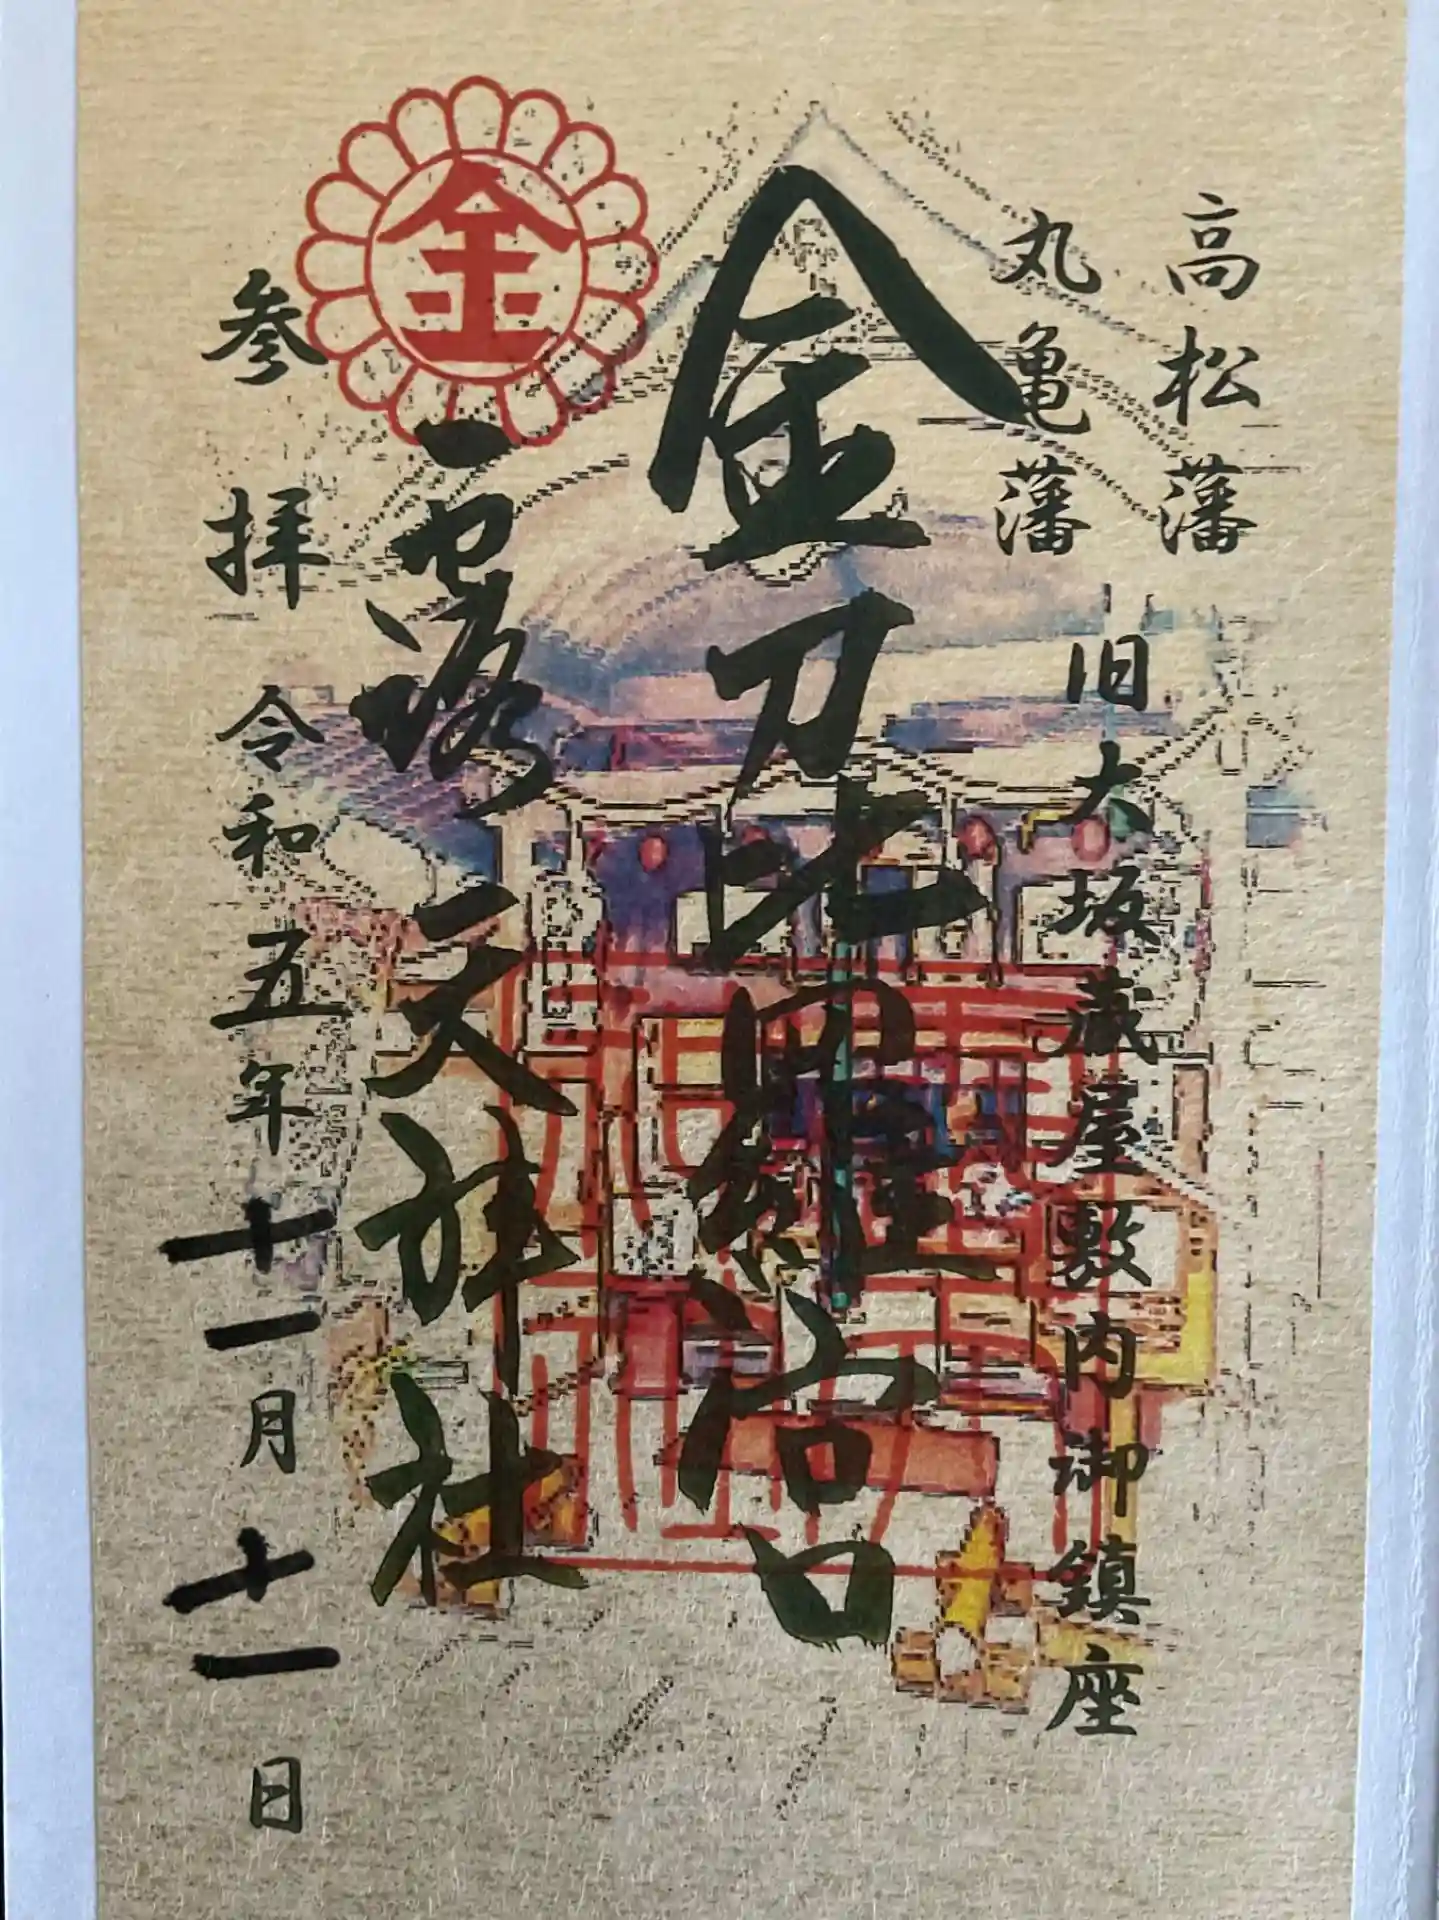 高松藩
丸亀藩
旧大坂蔵屋敷内御鎮座
金刀比羅宮
露天神社
金
参拝
令和五年十一月十一日